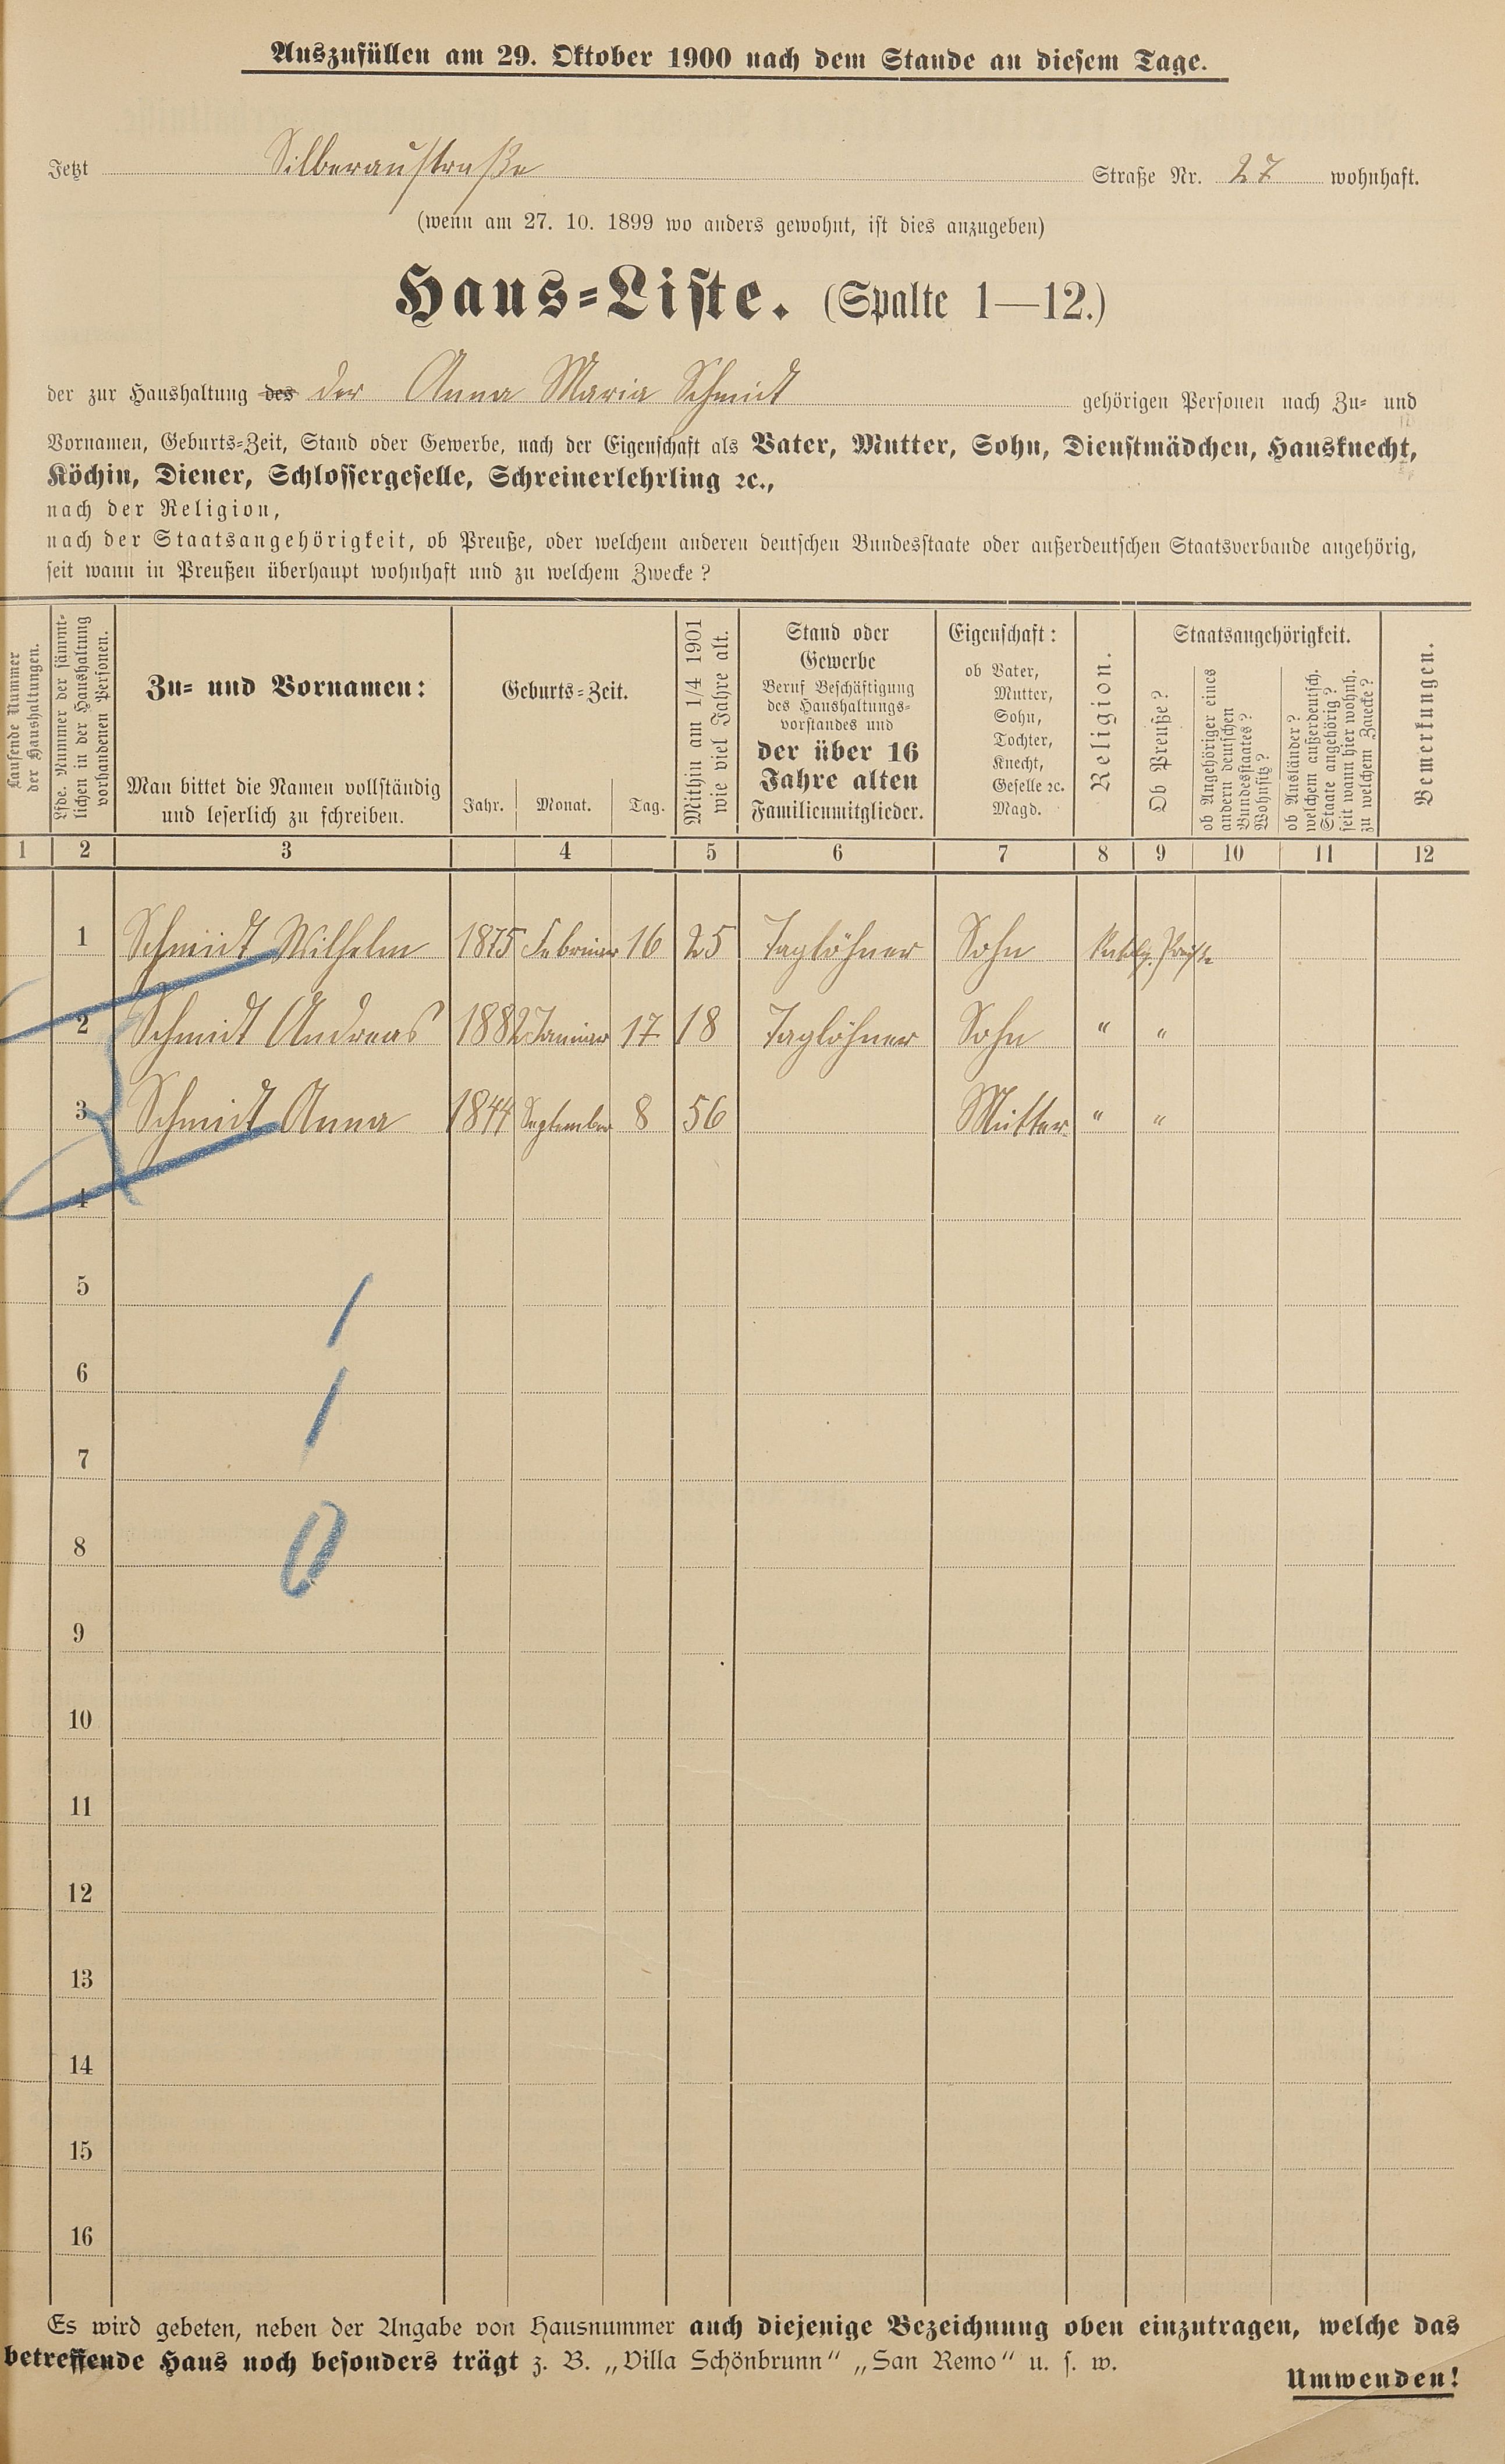 Auszufüllen am 29. Oktober 1900 nach dem Stande an diesem Tage.
Jetzt Silberaustraße Straße Nr. 27 wohnhaft.
(wenn am 27. 10. 1899 wo anders gewohnt, ist dies anzugeben)
Haus-Liste. (Spalte 1—12.)
der zur Haushaltung des der Anna Maria Schmidt gehörigen Personen nach Zu- und
Vornamen, Geburts-Zeit, Stand oder Gewerbe, nach der Eigenschaft als Vater, Mutter, Sohn, Dienstmädchen, Hausknecht,
Köchin, Diener, Schlossergeselle, Schreinerlehrling ꝛc.,
nach der Religion,
nach der Staatsangehörigkeit, ob Preuße, oder welchem anderen deutschen Bundesstaate oder außerdeutschen Staatsverbande angehörig,
seit wann in Preußen überhaupt wohnhaft und zu welchem Zwecke?
Laufende Nummer
der Haushaltungen.
Lfde. Nummer der sämmt-
lichen in der Haushaltung
vorhandenen Personen.
Zu- und Vornamen:
Man bittet die Namen vollständig
und leserlich zu schreiben.
Geburts-Zeit.
Jahr. Monat. Tag.
Mithin am 1/4 1901
wie viel Jahre alt.
Stand oder
Gewerbe
Beruf Beschäftigung
des Haushaltungs-
vorstandes und
der über 16
Jahre alten
Familienmitglieder.
Eigenschaft:
ob Vater,
Mutter,
Sohn,
Tochter,
Knecht,
Geselle ꝛc.
Magd.
Religion.
Staatsangehörigkeit.
Ob Preuße?
ob Angehöriger eines
andern deutschen
Bundesstaates?
Wohnsitz?
ob Ausländer?
welchem außerdeutsch.
Staate angehörig?
seit wann hier wohnh.
zu welchem Zwecke?
Bemerkungen.
1 2 3 4 5 6 7 8 9 10 11 12
1 Schmidt Wilhelm 1875 Februar 16 25 Taglöhner Sohn Kathlg. Preuße
2 Schmidt Andreas 1882 Januar 17 18 Taglöhner Sohn " "
3 Schmidt Anna 1844 September 8 56 Mutter " "
4
5
6
7
8
9
10
11
12
13
14
15
16
Es wird gebeten, neben der Angabe von Hausnummer auch diejenige Bezeichnung oben einzutragen, welche das
betreffende Haus noch besonders trägt z. B. „Villa Schönbrunn" „San Remo" u. s. w.
Umwenden!